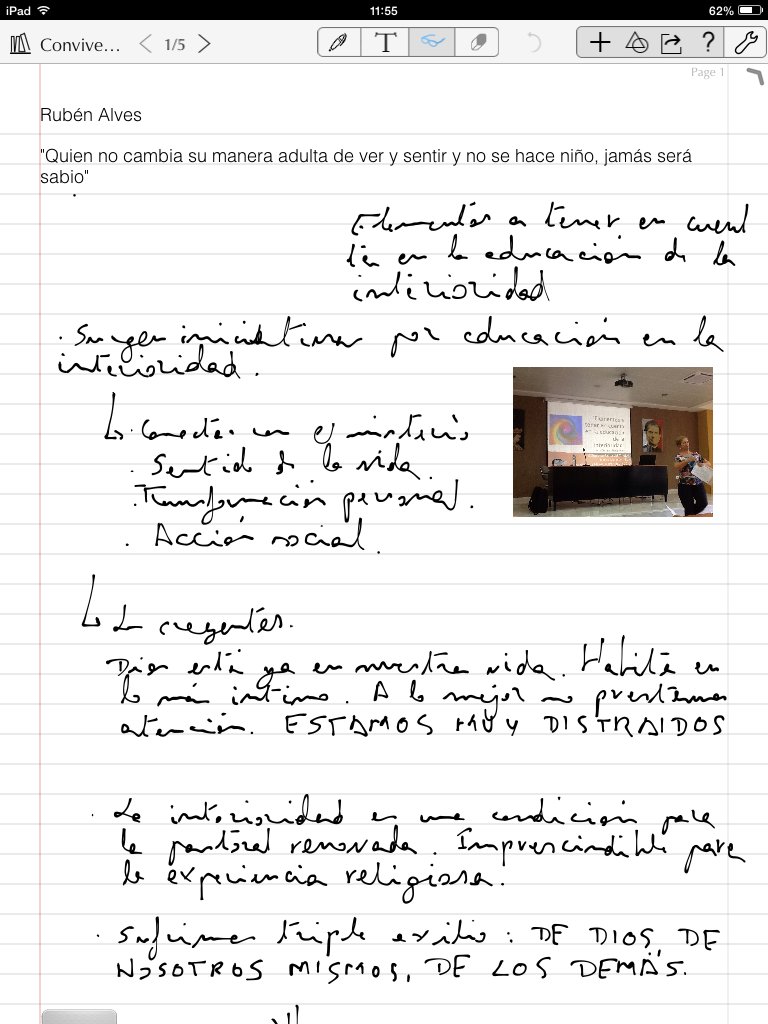 iPad 11:55 62%
Convive... 1/5 T ?
Page 1
Rubén Alves
"Quien no cambia su manera adulta de ver y sentir y no se hace niño, jamás será
sabio"
Elementos a tener en cuen
ta en la educación de la
interioridad
Elementos a
tener en cuenta
en la educación
de la
interioridad
. Surgen iniciativas por educación en la
interioridad.
. Conectar con el misterio
. Sentido de la vida.
. Transformación personal.
. Acción social.
creyentes.
Dios está ya en nuestra vida. Habita en
lo más íntimo. A lo mejor no prestamos
atención. ESTAMOS MUY DISTRAIDOS
. La interioridad es una condición para
la pastoral renovada. Imprescindible para
la experiencia religiosa.
. Sufrimos triple exilio: DE DIOS, DE
NOSOTROS MISMOS, DE LOS DEMÁS.